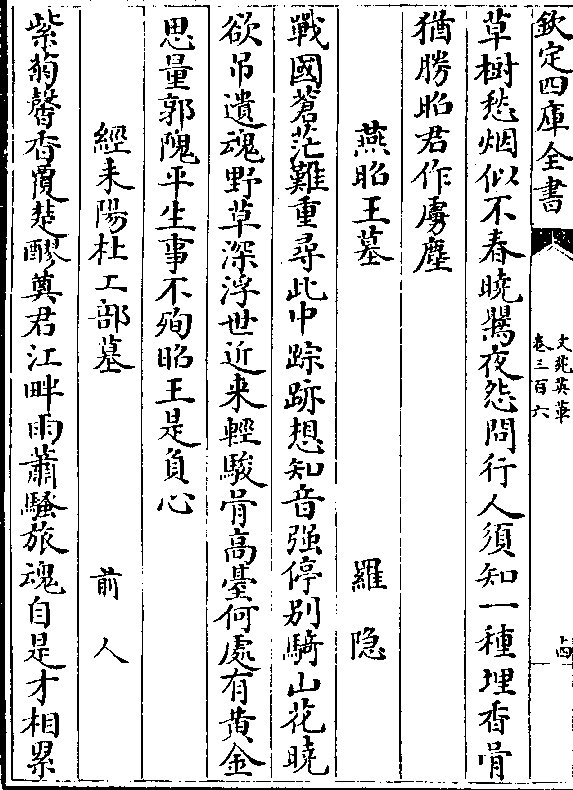 欽定四庫全書
文苑英華
卷三百六
十四
草樹愁烟似不春曉鶯夜怨問行人須知一種埋香骨
猶勝昭君作虜塵
燕昭王墓　羅隐
戰國蒼茫難重尋此中踪跡想知音强停别騎山花曉
欲吊遺魂野草深浮世近来輕駿骨高臺何處有黄金
思量郭隗平生事不殉昭王是負心
經耒陽杜工部墓　前人
紫菊馨香覆楚醪奠君江畔雨蕭騷旅魂自是才相累